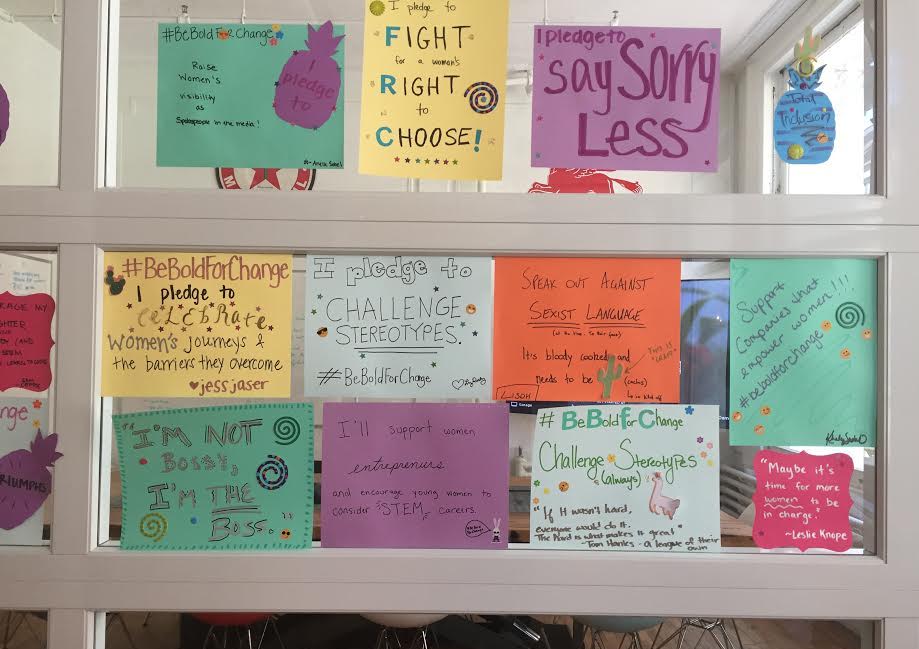 #BeBoldForChange
Raise
Women's
visibility
as
Spokespeople in the media!
I
pledge
to
I pledge to
FIGHT
for a women's
RIGHT
to
CHOOSE!
I pledge to
say Sorry
Less
Total
Inclusion
M
L
#BeBoldForChange
I pledge to
CELEBRATE
Women's journeys &
the barriers they overcome
jessjaser
I pledge to
CHALLENGE
STEREOTYPES.
#BeBoldForChange
SPEAK OUT AGAINST
SEXIST LANGUAGE
It's bloody cooked and
needs to be
(cactus)
THIS IS
LISDH
Support
Companies that
empower women!!!
#beboldforchange
RAGE MY
GHTER
AND
STEM
nge
RIUMPHS
"I'M NOT
BOSSY,
I'M THE
BOSS."
I'll support women
entreprenurs
and encourage young women to
consider "STEM" careers.
#BeBoldForChange
Challenge Stereotypes
(always)
"If it wasn't hard,
everyone would do it.
The hard is what makes it great"
-Tom Hanks - A league of their
own
"Maybe it's
time for more
women to be
in charge."
~Leslie Knope